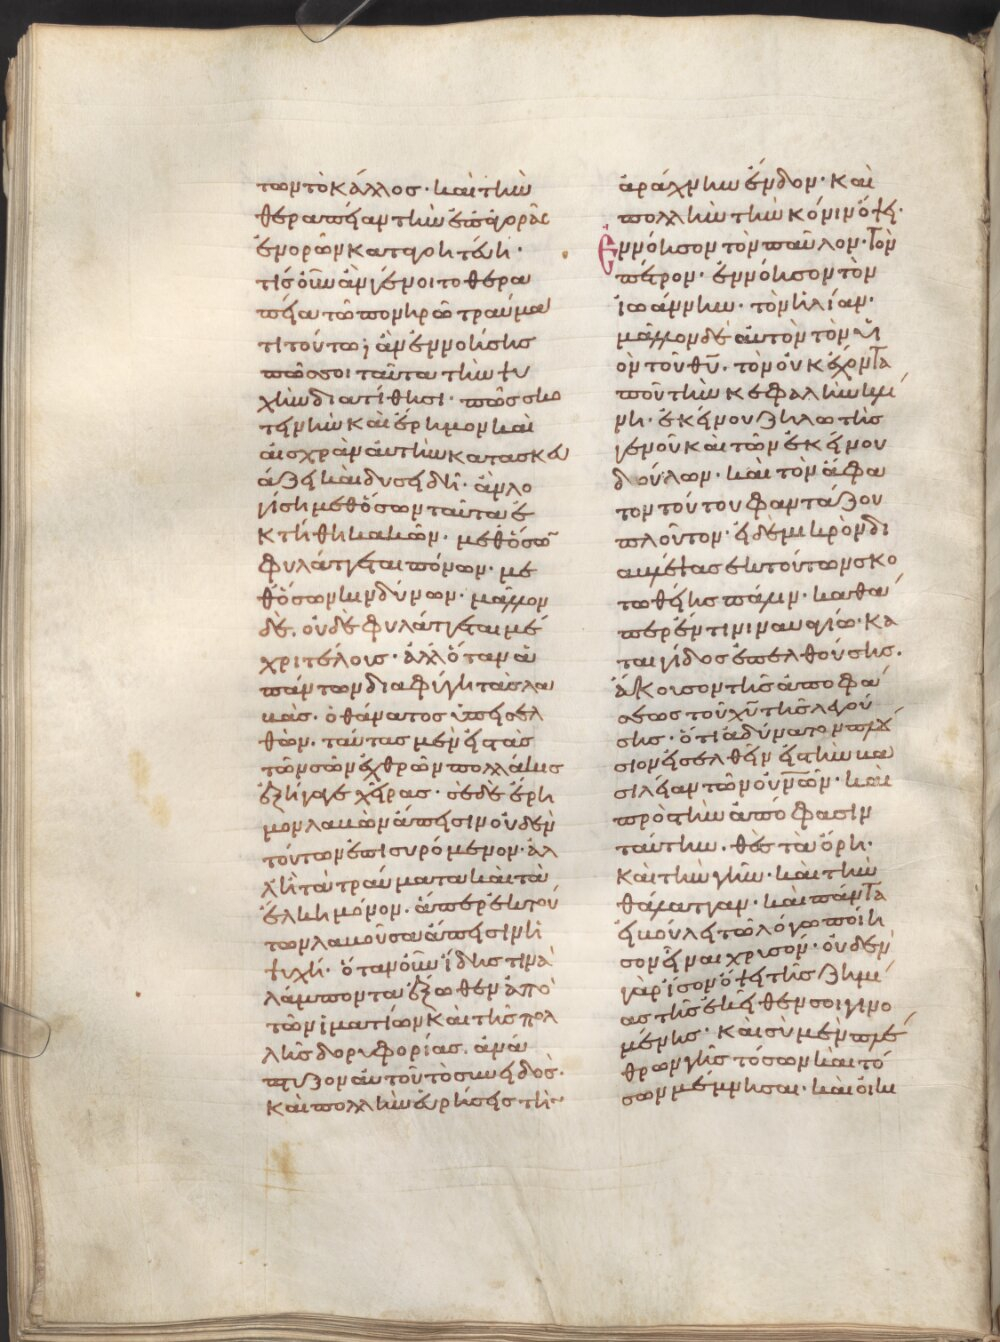 των τὸ κάλλος· καὶ τὴν
θεραπείαν τὴν ἔπαφορᾶς
ἐνορῶν κατηφὴς τέλη·
τίς οὖν ἂν γένοιτο θερα
πεία τῶ πονηρῶ τραύμα
τι τούτω; ἂν ἐννοήσης
πῶς σοι ταῦτα τὴν ψυ
χὴν διατίθησι· πῶς σκο
τεινὴν καὶ ἔρημον καὶ
αἰσχρὰν αὐτὴν κατασκευ
άζει καὶ δυσειδῆ· ἂν λο
γίση μεθ' ὅσων ταῦτα ἐ
κτήθη κακῶν· μεθ' ὅσω̅
φυλάττεται πόνων· με
θ' ὅσων κινδύνων· μᾶλλον
δὲ. οὐδὲ φυλάττεται μέ
χρι τέλους· ἀλλ' ὅταν ἁ
πάντων διαφύγη τὰς λα
βὰς· ὁ θάνατος ὑπεισελ
θὼν. ταύτας μὲν εἰς τὰς
τῶν σῶν ἐχθρῶν πολλάκις
ἐξήγαγε χεῖρας· σὲ δὲ ἔρη
μον λαβὼν ἄπεισιν οὐδὲν
τούτων ἐπισυρόμενον· ἀλ
λ' ἢ τὰ τραύματα καὶ τὰ
ἕλκη μόνον. ἅπερ ἐκ τού
των λαβοῦσα ἄπεισιν ἡ
ψυχή· ὅταν οὖν ἴδης τινὰ
λάμποντα ἔξωθεν ἀπὸ
τῶν ἱματίων καὶ τῆς πολ
λῆς δορυφορίας. ἀνά
πτυξον αὐτοῦ τὸ συνειδὸς·
καὶ πολλὴν εὑρήσεις τὴν
ἀράχνην ἔνδον· καὶ
πολλὴν τὴν κόνιν ὄψει·
ἐννόησον τὸν παῦλον· τὸν
πέτρον· ἐννόησον τὸν
ἰωάννην· τὸν ἠλίαν·
μᾶλλον δὲ αὐτὸν τὸν υἱ
ὸν τοῦ θυ̅. τὸν οὐκ ἔχοντα
ποῦ τὴν κεφαλὴν κλί
νη· ἐκείνου ζηλωτὴς
γενοῦ καὶ τῶν ἐκείνου
δούλων· καὶ τὸν ἄφα
τον τούτου φαντάζου
πλοῦτον· εἰ δὲ μικρὸν δι
αβλέψας ἐκ τούτων σκο
τωθείης πάλιν· καθά
περ ἔν τινι ναυαγίω· κα
ταιγίδος ἐπελθούσης.
ἄκουσον τῆς ἀποφά
σεως τοῦ χυ̅ τῆς λεγού
σης· ὅτι ἀδύνατον πλού
σιον εἰσελθεῖν εἰς τὴν βα
σιλείαν τῶν οὐν̅ῶν· καὶ
πρὸς τὴν ἀπόφασιν
ταύτην. θὲς τὰ ὄρη·
καὶ τὴν γῆν· καὶ τὴν
θάλατταν· καὶ πάντα
εἰ βούλει τῶ λόγω ποίη
σον εἶναι χρυσὸν· οὐδὲν
γὰρ ἴσον ὄψει τῆς ζημί
ας τῆς ἐκεῖθεν σοι γινο
μένης· καὶ σὺ μὲν πλέ
θρων γῆς τόσων καὶ τό
σων μέμνησαι· καὶ οἰκι